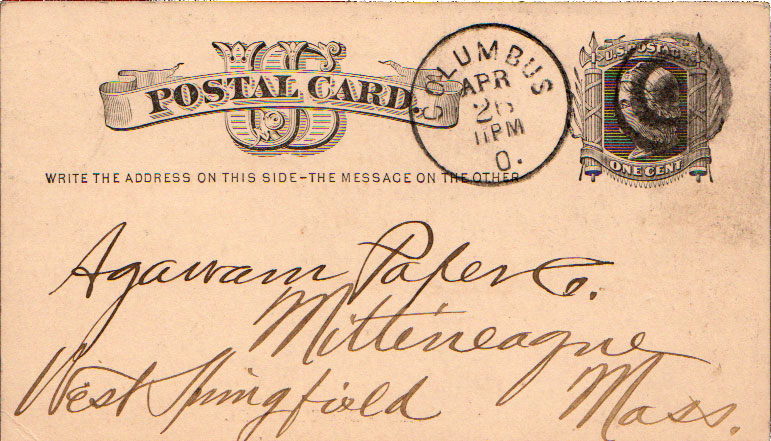 US
POSTAL CARD.
COLUMBUS
APR
26
11PM
O.
U.S. POSTAGE
ONE CENT
WRITE THE ADDRESS ON THIS SIDE–THE MESSAGE ON THE OTHER
Agawam Paper Co.
Mitteneague
West Springfield Mass.